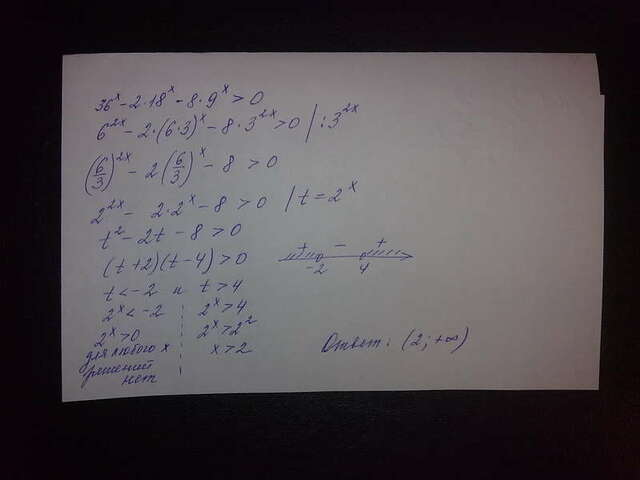 36^x - 2·18^x - 8·9^x > 0
6^2x - 2·(6·3)^x - 8·3^2x > 0 | : 3^2x
(6/3)^2x - 2(6/3)^x - 8 > 0
2^2x - 2·2^x - 8 > 0 | t = 2^x
t^2 - 2t - 8 > 0
(t+2)(t-4) > 0
+ - +
-2 4
t < -2 и t > 4
2^x < -2 2^x > 4
2^x > 0 2^x > 2^2
для любого x x > 2
решений
нет
Ответ: (2; +∞)